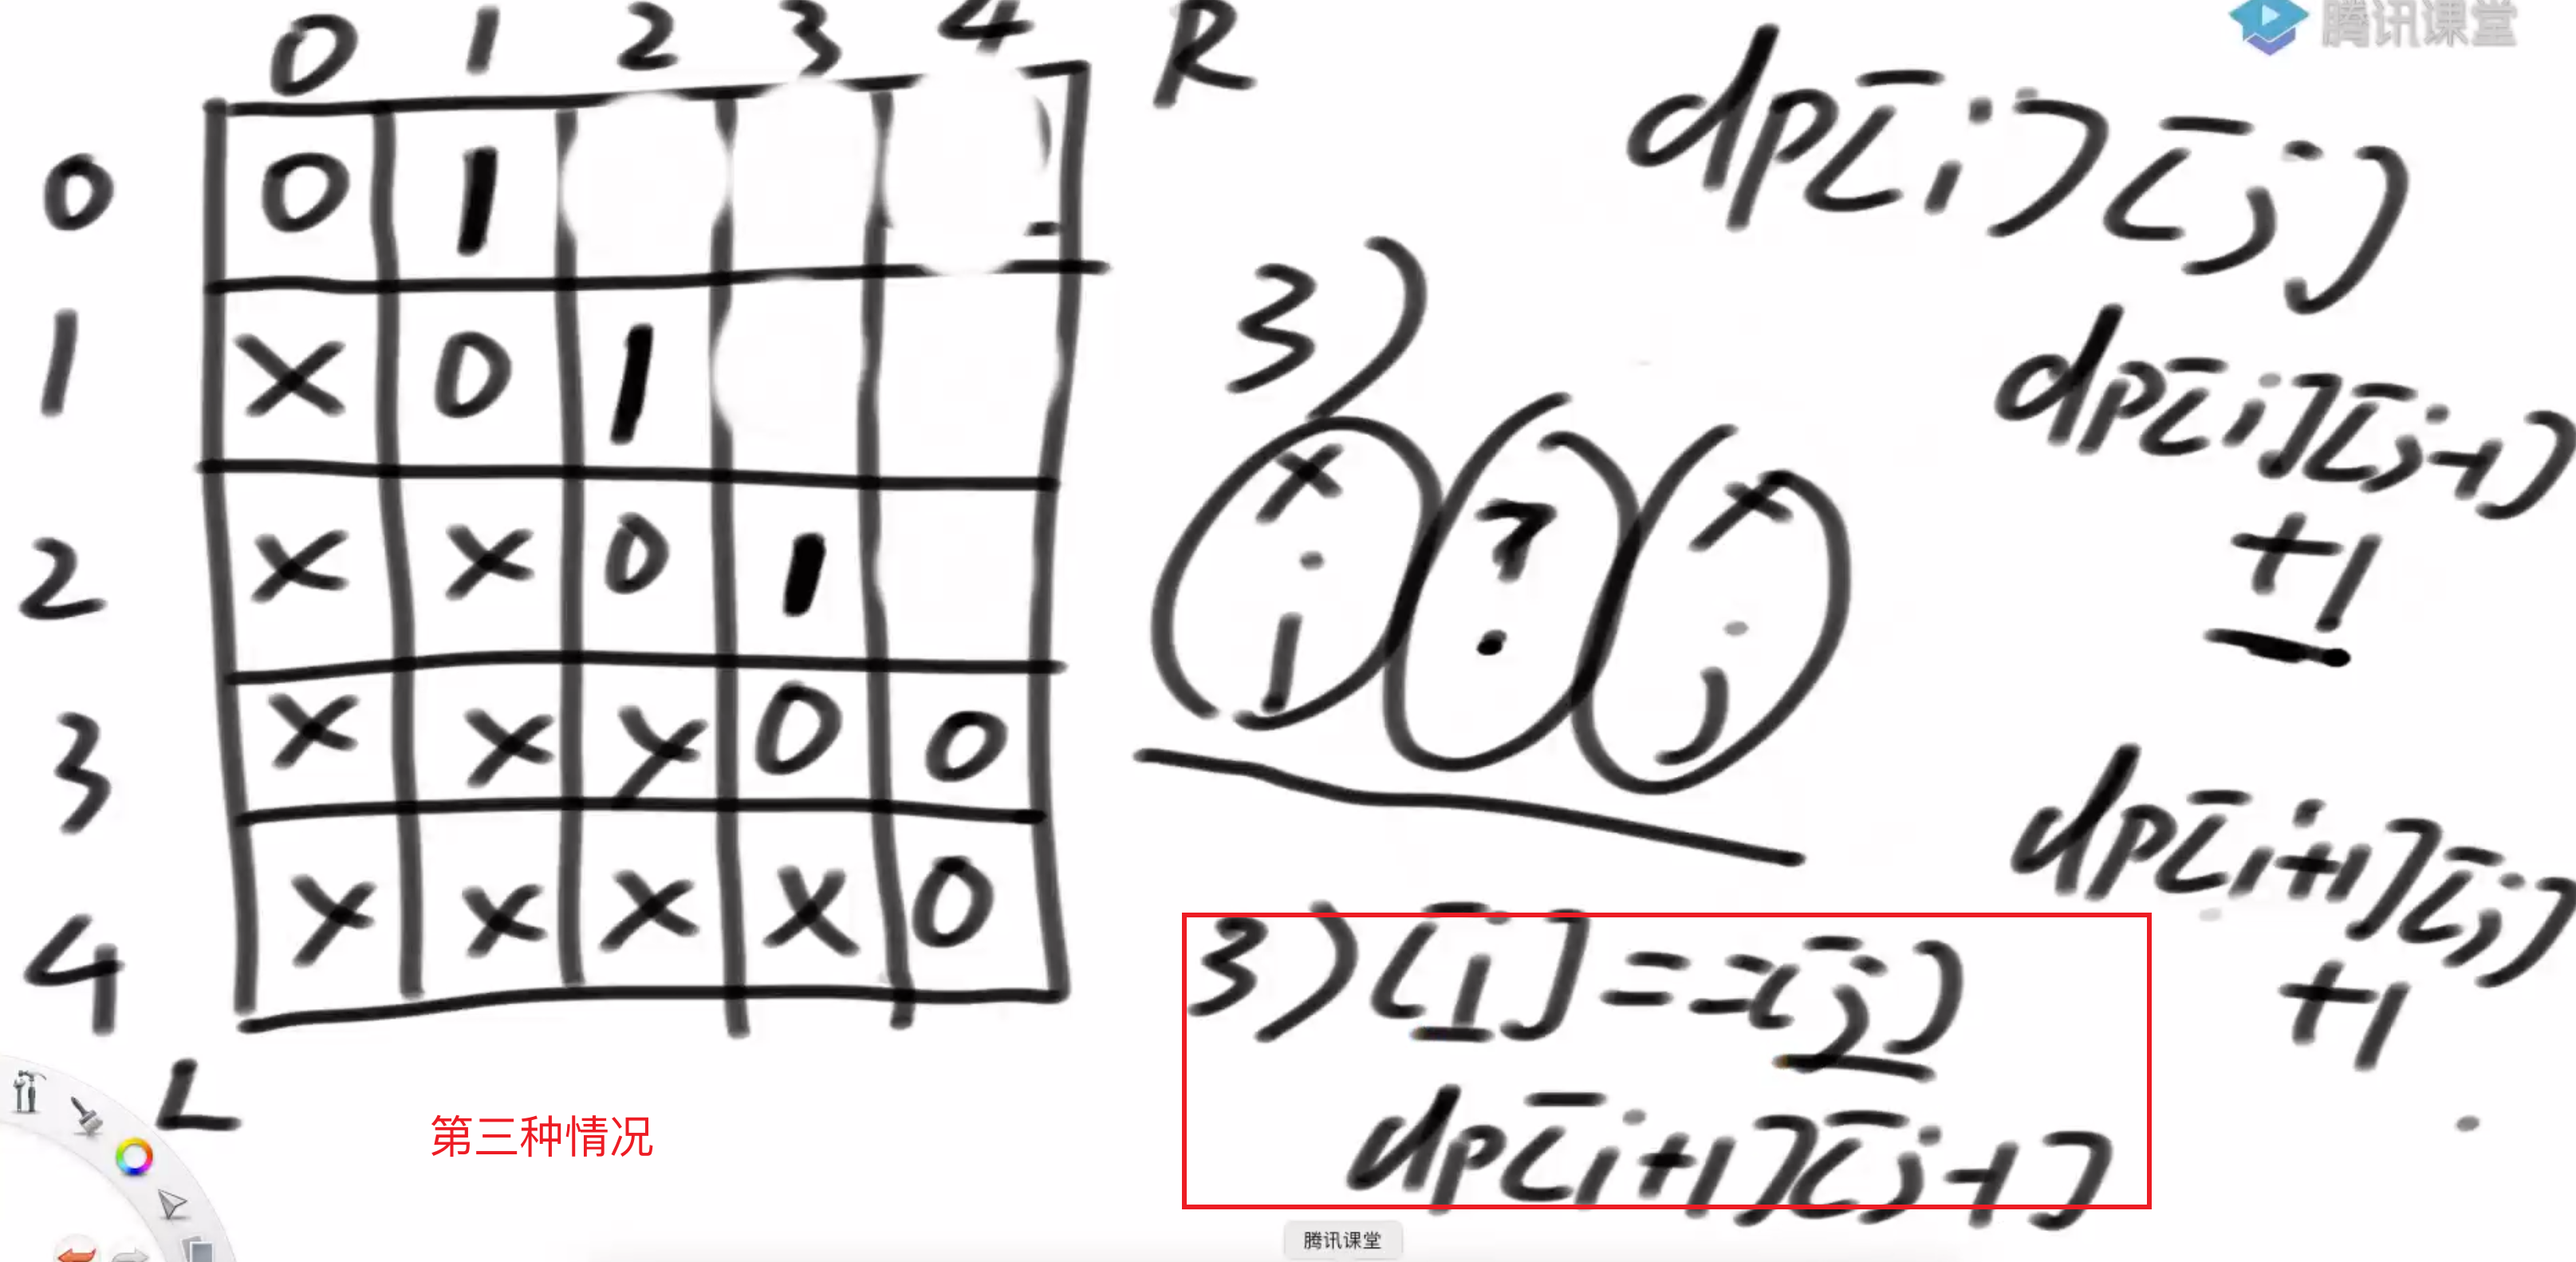 腾讯课堂
0 1 2 3 4 R
0 0 1
1 X 0 1
2 X X 0 1
3 X X X 0 0
4 X X X X 0
L
dp[i][j]
3)
dp[i][j-1]
+1
X ? X
i j
dp[i+1][j]
+1
3) [i]==[j]
dp[i+1][j-1]
第三种情况
腾讯课堂